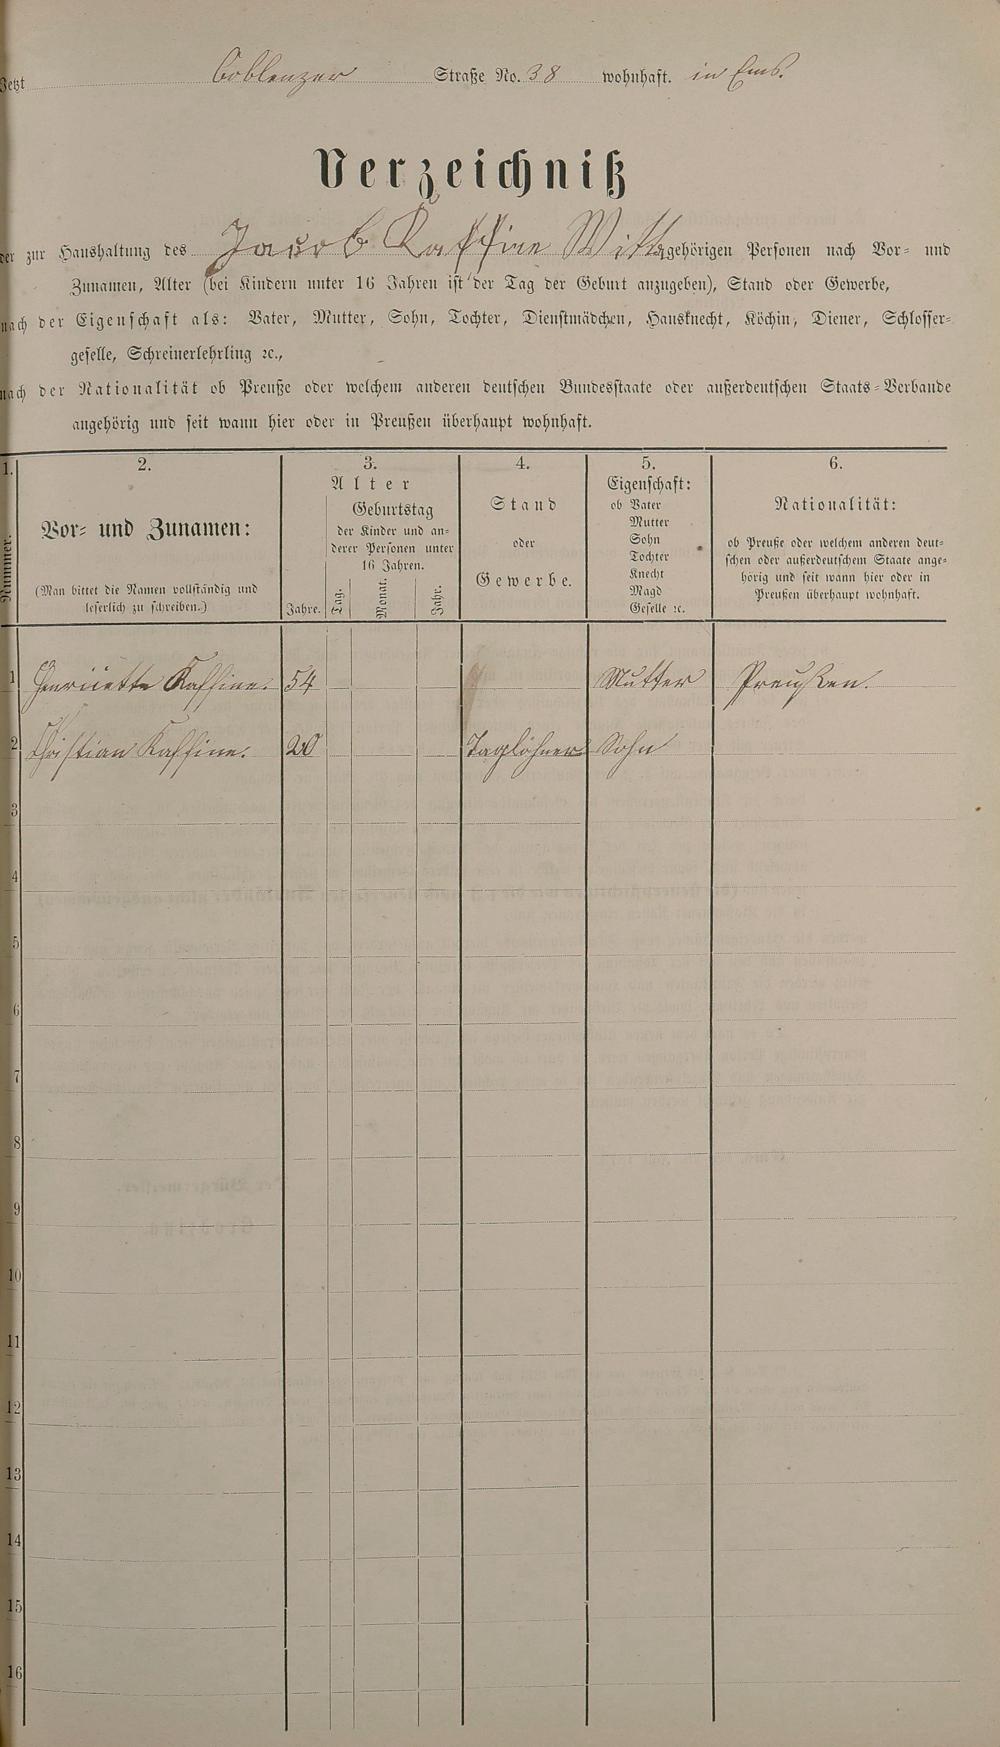 Jetzt Coblenzer Straße No. 38 wohnhaft. in Ems.
Verzeichniß
der zur Haushaltung des Jacob Kaffine Wittw gehörigen Personen nach Vor- und
Zunamen, Alter (bei Kindern unter 16 Jahren ist der Tag der Geburt anzugeben), Stand oder Gewerbe,
nach der Eigenschaft als: Vater, Mutter, Sohn, Tochter, Dienstmädchen, Hausknecht, Köchin, Diener, Schlosser-
geselle, Schreinerlehrling ꝛc.,
nach der Nationalität ob Preuße oder welchem anderen deutschen Bundesstaate oder außerdeutschen Staats-Verbande
angehörig und seit wann hier oder in Preußen überhaupt wohnhaft.
1. 2. 3. 4. 5. 6.
Nummer.
Vor- und Zunamen:
(Man bittet die Namen vollständig und
leserlich zu schreiben.)
Alter
Jahre.
Geburtstag
der Kinder und an-
derer Personen unter
16 Jahren.
Tag. Monat. Jahr.
Stand
oder
Gewerbe.
Eigenschaft:
ob Vater
Mutter
Sohn
Tochter
Knecht
Magd
Geselle ꝛc.
Nationalität:
ob Preuße oder welchem anderen deut-
schen oder außerdeutschem Staate ange-
hörig und seit wann hier oder in
Preußen überhaupt wohnhaft.
1 Henriiette Kaffine. 54 Mutter Preußen.
2 Christian Kaffine. 20 Taglöhner Sohn
3
4
5
6
7
8
9
10
11
12
13
14
15
16